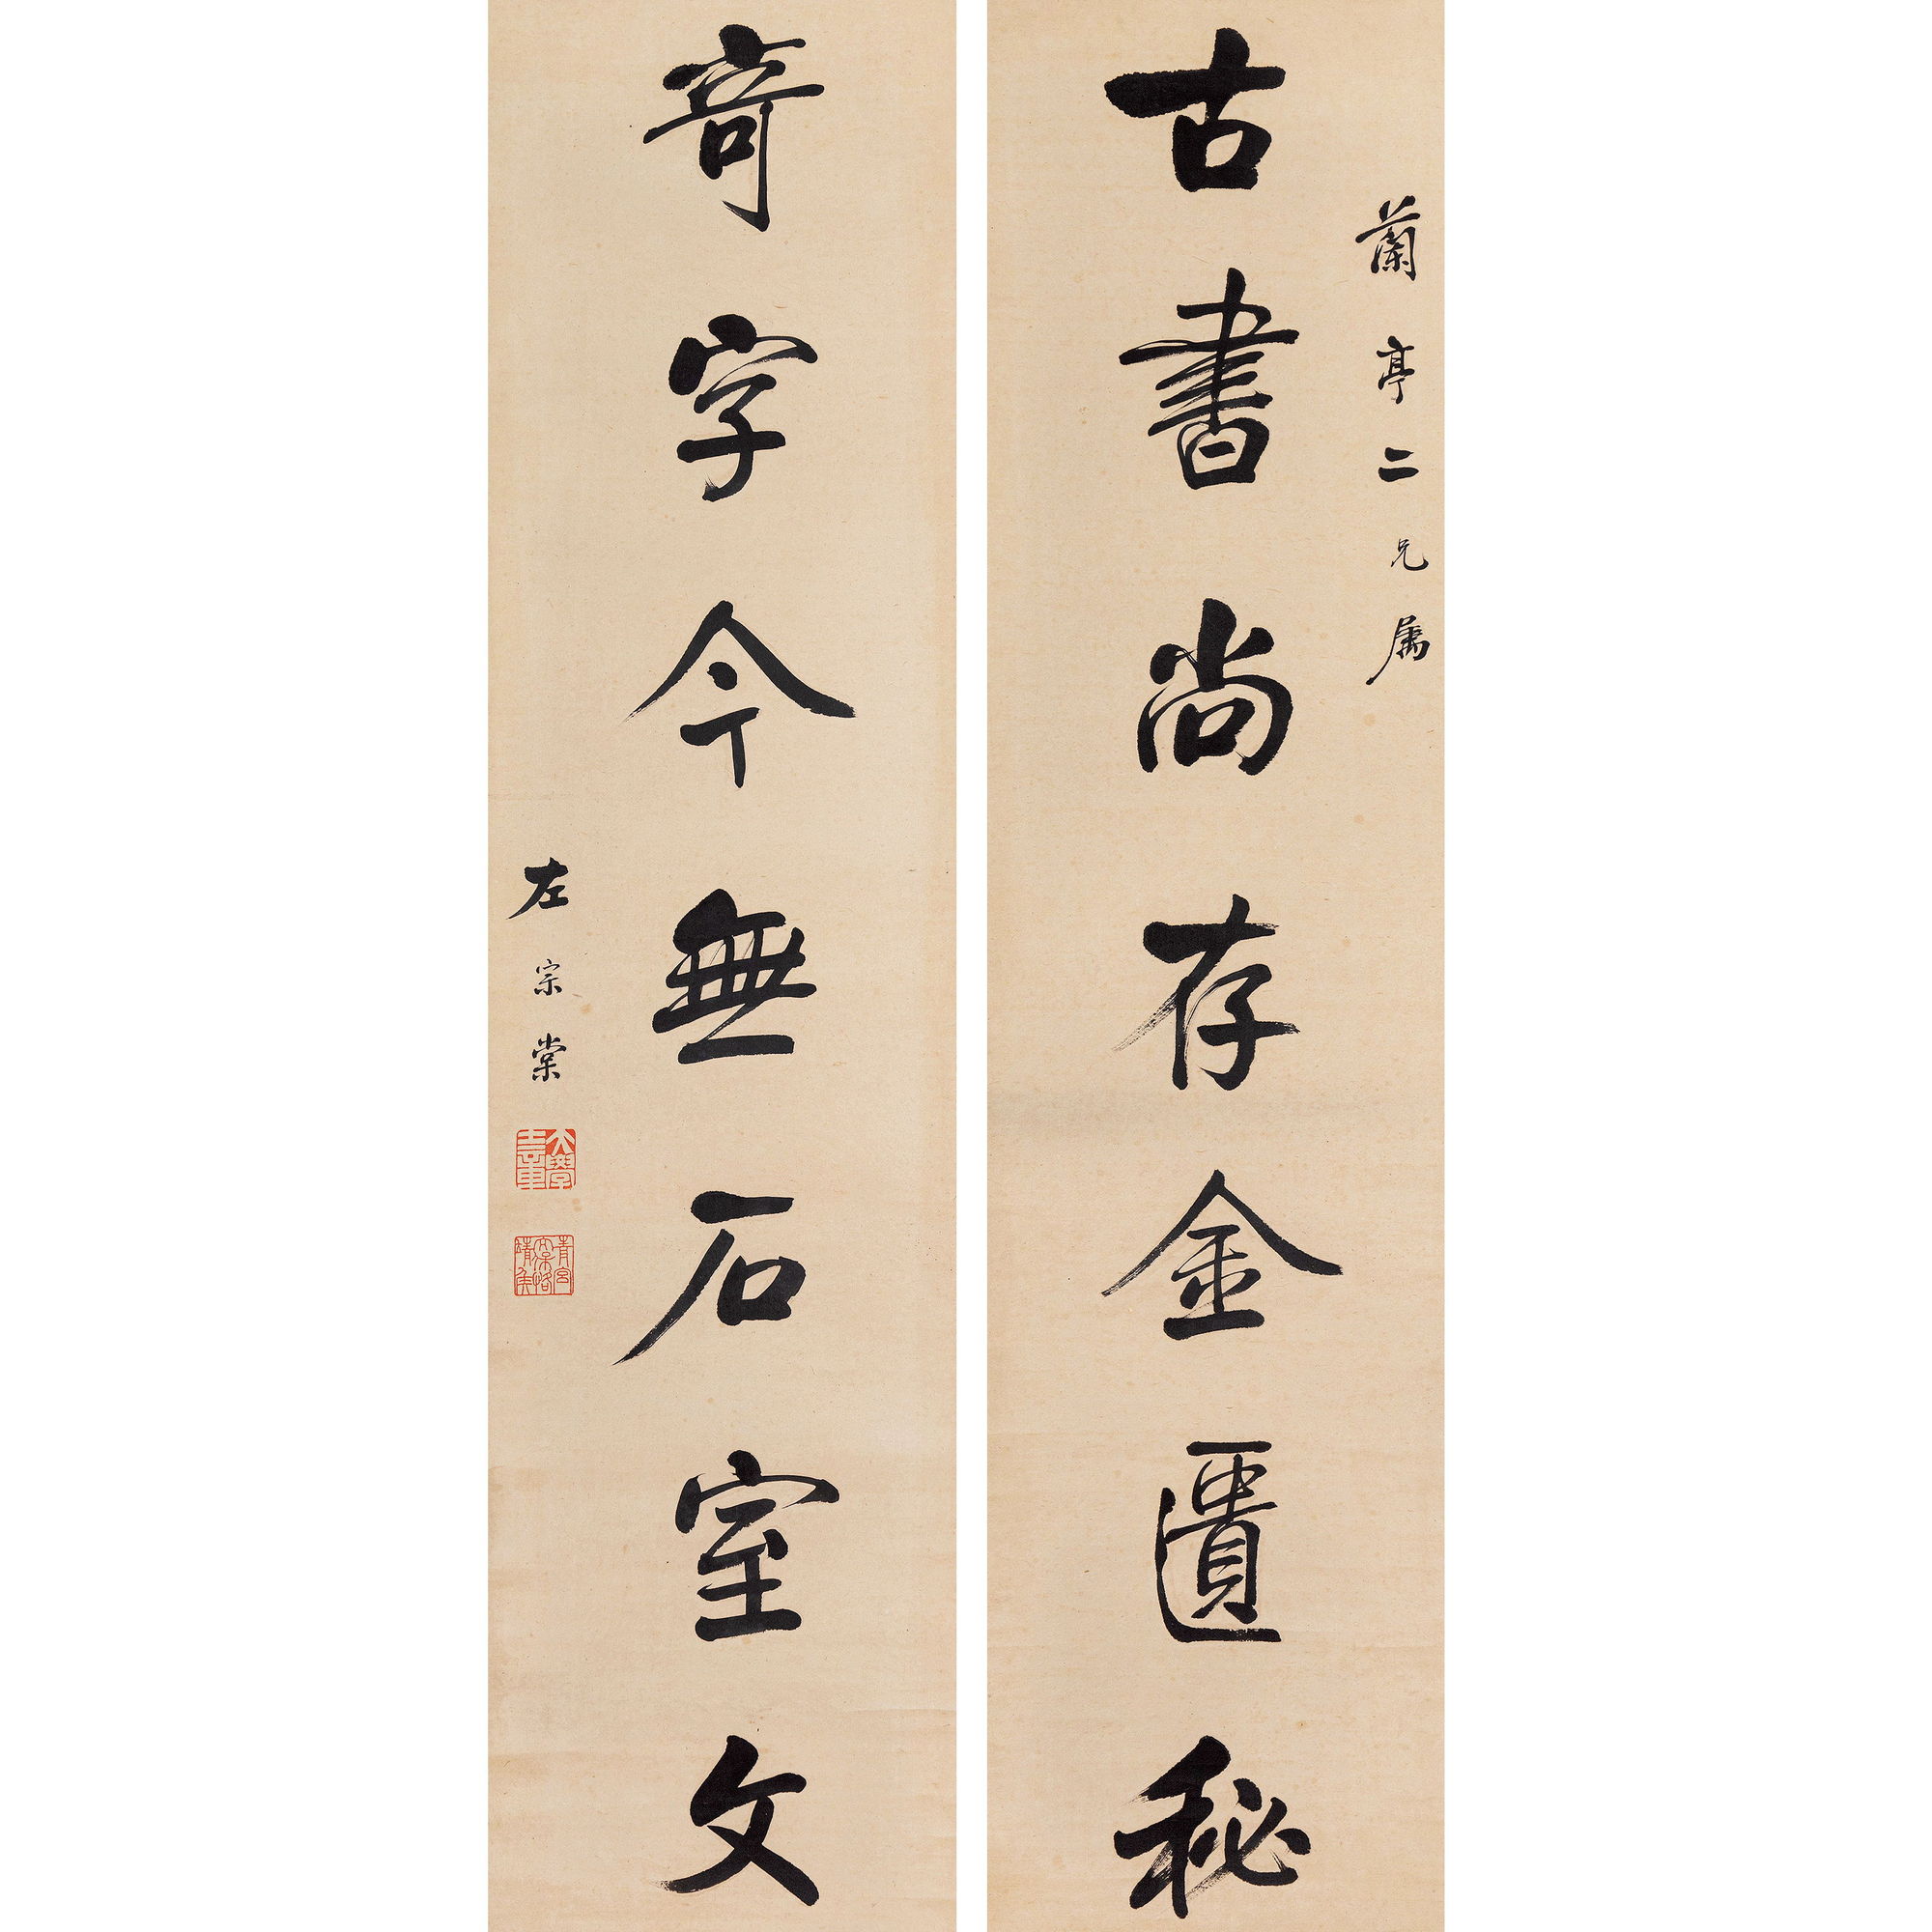 蘭亭二兄属
古書尚存金匱秘
奇字今無石室文
左宗棠
大學士章
青宮太保恪靖侯